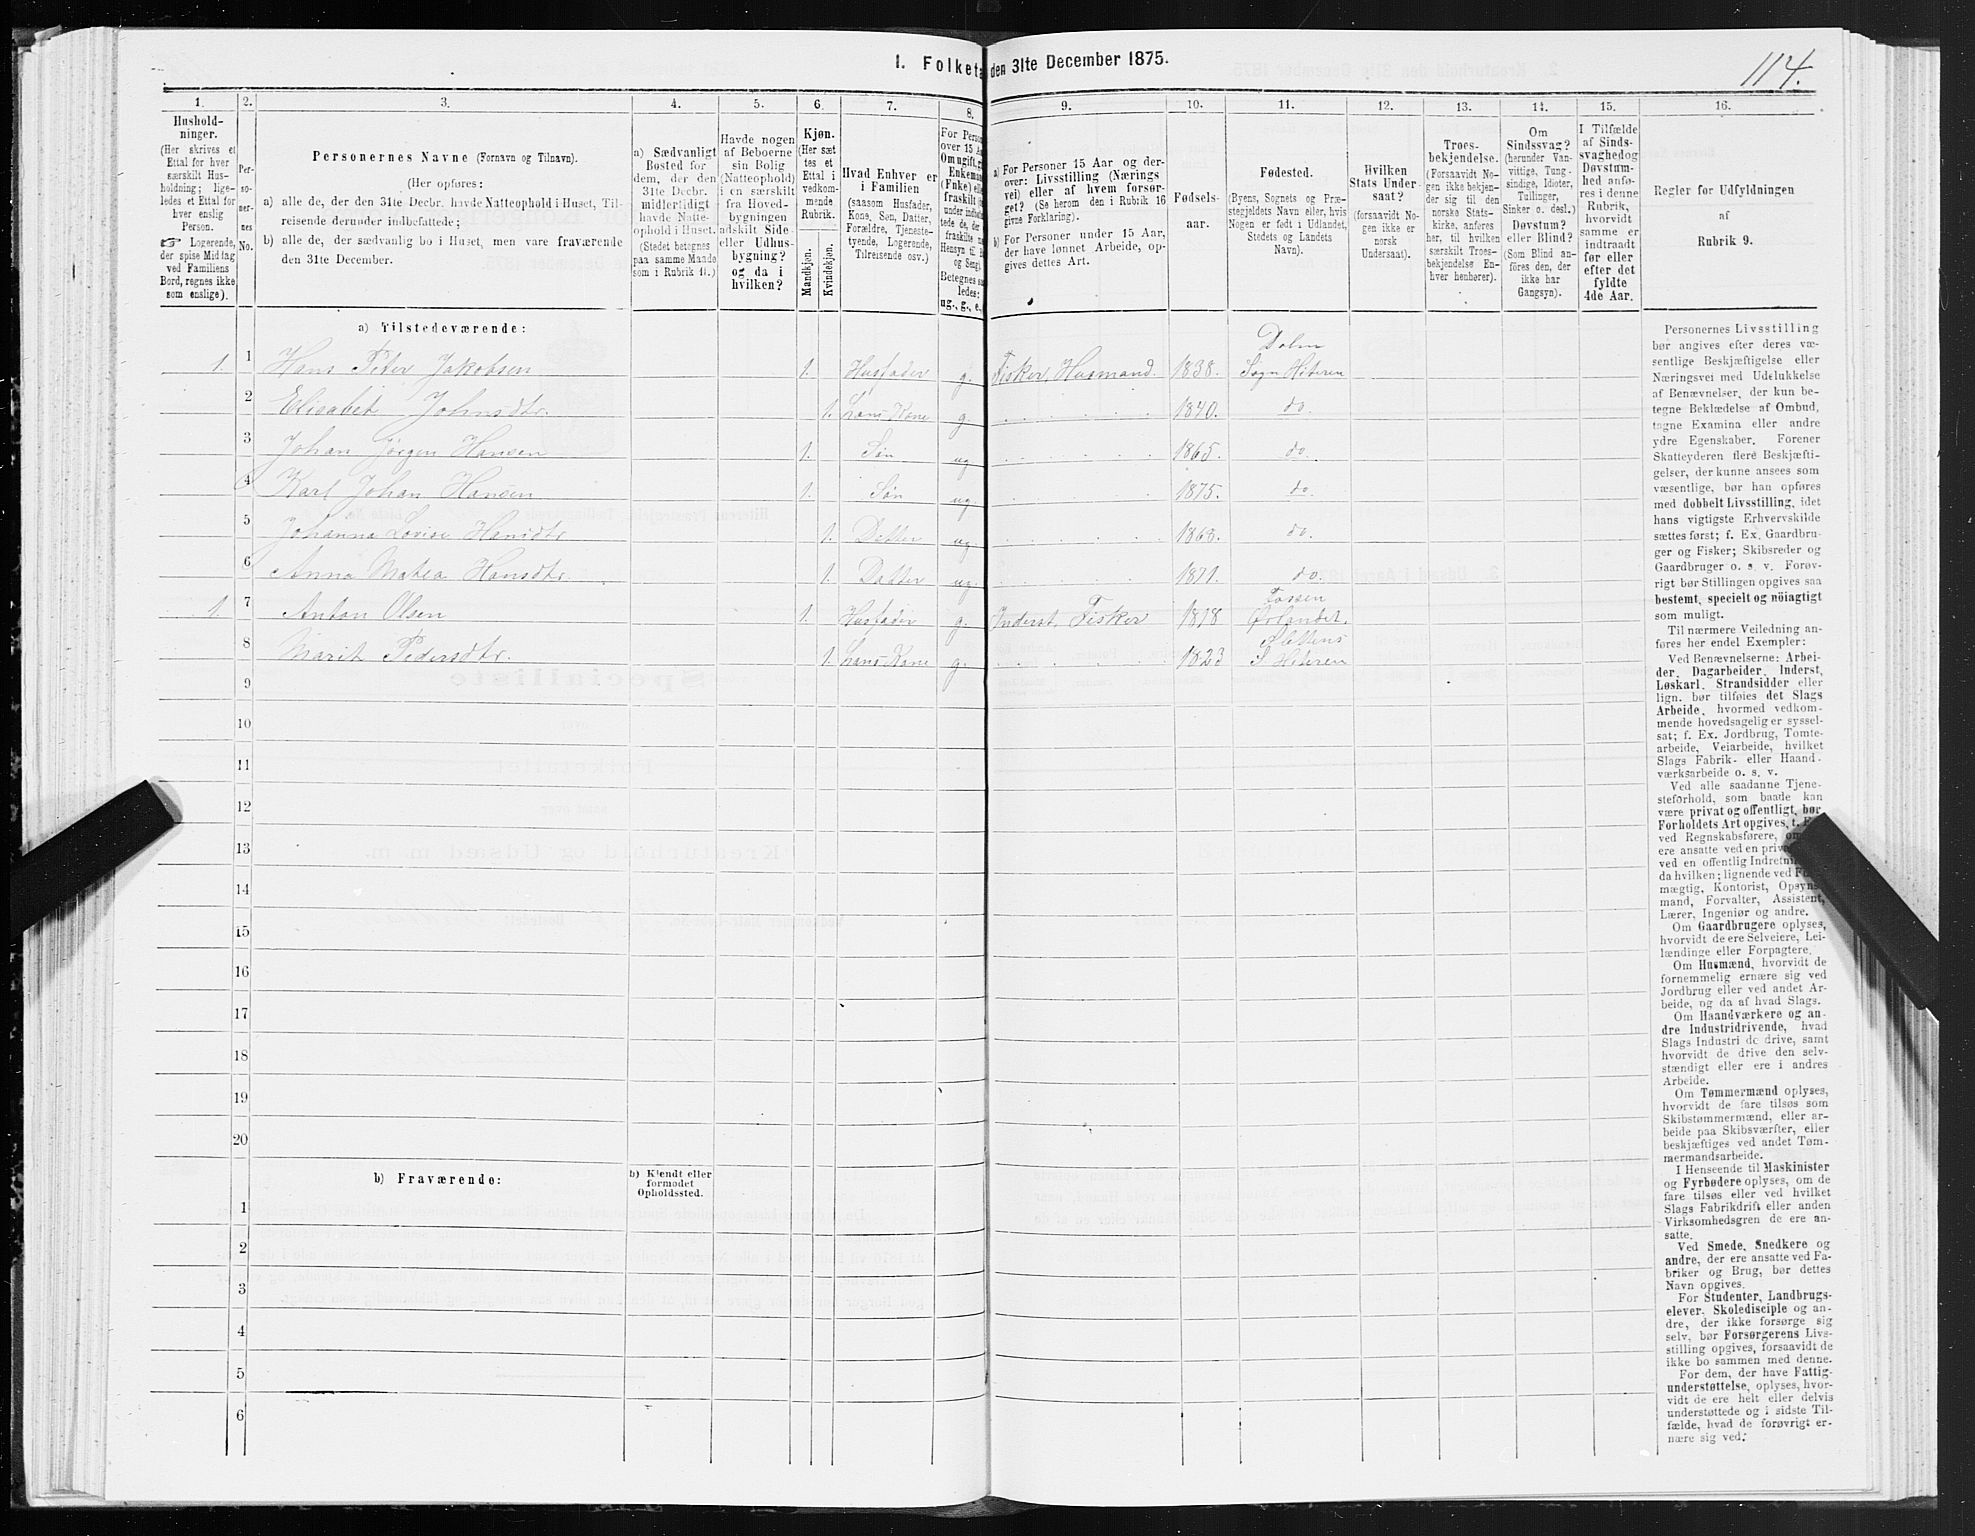 114.
I. Folketa den 31te December 1875.
1. 2. 3. 4. 5. 6. 7. 8. 9. 10. 11. 12. 13. 14. 15. 16.
Hushold-
ninger.
(Her skrives et
Ettal for hver
særskilt Hus-
holdning; lige-
ledes et Ettal for
hver enslig
Person.
☞ Logerende,
der spise Middag
ved Familiens
Bord, regnes ikke
som enslige).
Per-
so-
ner-
nes
No.
Personernes Navne (Fornavn og Tilnavn).
(Her opføres:
a) alle de, der den 31te Decbr. havde Natteophold i Huset, Til-
reisende derunder indbefattede;
b) alle de, der sædvanlig bo i Huset, men vare fraværende
den 31te December.
a) Sædvanligt
Bosted for
dem, der den
31te Decbr.
midlertidigt
havde Natte-
ophold i Huset.
(Stedet betegnes
paa samme Maade
som i Rubrik 11.)
Havde nogen
af Beboerne
sin Bolig
(Natteophold)
i en særskilt
fra Hoved-
bygningen
adskilt Side-
eller Udhus-
bygning?
og da i
hvilken?
Kjøn.
(Her sæt
tes et
Ettal i
vedkom-
mende
Rubrik.
Mandkjøn.
Kvindekjøn.
Hvad Enhver er
i Familien
(saasom Husfader,
Kone, Søn, Datter,
Forældre, Tjeneste-
tyende, Logerende,
Tilreisende osv.)
For Person
over 15 Aa
Om ugift, g
Enkema
(Enke) el
fraskilt
under indbe
tede de, d
fraskilte
Hensyn til
og Seng).
Betegnes sa
ledes:
ug., g., e.,
a) For Personer 15 Aar og der-
over: Livsstilling (Nærings
vei) eller af hvem forsør-
get? (Se herom den i Rubrik 16
givne Forklaring).
b) For Personer under 15 Aar,
der have lønnet Arbeide, op-
gives dettes Art.
Fødsels-
aar.
Fødested.
(Byens, Sognets og Præ-
stegjeldets Navn eller, hvis
Nogen er født i Udlandet,
Stedets og Landets
Navn).
Hvilken
Stats Under-
saat?
(forsaavidt No-
gen ikke er
norsk
Undersaat).
Troes-
bekjendelse.
(Forsaavidt No-
gen ikke bekjen-
der sig til den
norske Stats-
kirke, anføres
her, til hvilken
særskilt Troes-
bekjendelse En-
hver henhører).
Om
Sindssvag?
(herunder Van-
vittige, Tung-
sindige, Idioter,
Tullinger,
Sinker o. desl.)
Døvstum?
eller Blind?
(Som Blind an-
føres den, der
ikke har
Gangsyn).
I Tilfælde
af Sinds-
svaghedog
Døvstum-
hed anfø-
res i denne
Rubrik,
hvorvidt
samme er
indtraadt
før eller
efter det
fyldte
4de Aar.
Regler for Udfyldningen
af
Rubrik 9.
a) Tilstedeværende:
1. 1 Hans Peter Jakobsen 1. Husfader g. Fisker, Husmand. 1838. Dolm Sogn Hiteren
2 Elisabet Johnsdtr. 1. Hans Kone g 1840. do.
3 Johan Jørgen Hansen 1. Søn ug 1865. do.
4 Karl Johan Hansen 1. Søn ug. 1875. do.
5 Johanna Lovise Hansdtr 1. Datter ug. 1863. do.
6 Anna Matea Hansdtr. 1. Datter ug. 1871. do.
1. 7 Anton Olsen 1. Husfader g. Inderst. Fisker 1818 Ørlandet.
8 Marit Pedersdtr. 1. Hans Kone g. 1823 S Hiteren
9
10
11
12
13
14
15
16
17
18
19
20
b) Fraværende:
b) Kjendt eller
formodet
Opholdssted.
1
2
3
4
5
6
Personernes Livsstilling
bør angives efter deres væ-
sentlige Beskjæftigelse eller
Næringsvei med Udelukkelse
af Benævnelser, der kun be-
tegne Beklædelse af Ombud,
tagne Examina eller andre
ydre Egenskaber. Forener
Skatteyderen flere Beskjæfti-
gelser, der kunne ansees som
væsentlige, bør han opføres
med dobbelt Livsstilling, idet
hans vigtigste Erhvervskilde
sættes først; f. Ex. Gaardbru-
ger og Fisker; Skibsreder og
Gaardbruger o. s. v. Forøv-
rigt bør Stillingen opgives saa
bestemt, specielt og nöiagtigt
som muligt.
Til nærmere Veiledning an-
føres her endel Exempler:
Ved Benævnelserne: Arbei-
der, Dagarbeider, Inderst,
Løskarl, Strandsidder eller
lign. bør tilføies det Slags
Arbeide, hvormed vedkom-
mende hovedsagelig er syssel-
sat; f. Ex. Jordbrug, Tomte-
arbeide, Veiarbeide, hvilket
Slags Fabrik- eller Haand-
værksarbeide o. s. v.
Ved alle saadanne Tjene-
steforhold, som baade kan
være privat og offentligt, bør
Forholdets Art opgives, t. E
ved Regnskabsførere, om
ere ansatte ved en priva
ved en offentlig Indretni
da hvilken; lignende ved F
mægtig, Kontorist, Opsyns
mand, Forvalter, Assistent,
Lærer, Ingeniør og andre.
Om Gaardbrugere oplyses,
hvorvidt de ere Selveiere, Lei-
lændinge eller Forpagtere.
Om Husmænd, hvorvidt de
fornemmelig ernære sig ved
Jordbrug eller ved andet Ar-
beide, og da af hvad Slags.
Om Haandværkere og an-
dre Industridrivende, hvad
Slags Industri de drive, samt
hvorvidt de drive den selv-
stændigt eller ere i andres
Arbeide.
Om Tømmermænd oplyses,
hvorvidt de fare tilsøs som
Skibstømmermænd, eller ar-
beide paa Skibsværfter, eller
beskjæftiges ved andet Tøm-
mermandsarbeide.
I Henseende til Maskinister
og Fyrbødere oplyses, om de
fare tilsøs eller ved hvilket
Slags Fabrikdrift eller anden
Virksomhedsgren de ere an-
satte.
Ved Smede, Snedkere og
andre, der ere ansatte ved Fa-
briker og Brug, bør dettes
Navn opgives.
For Studenter, Landbrugs-
elever, Skoledisciple og an-
dre, der ikke forsørge sig
selv, bør Forsørgerens Livs-
stilling opgives, forsaavidt de
ikke bo sammen med denne.
For dem, der have Fattig-
understøttelse, oplyses, hvor-
vidt de ere helt eller delvis
understøttede og i sidste Til-
fælde, hvad de forøvrigt er-
nære sig ved.